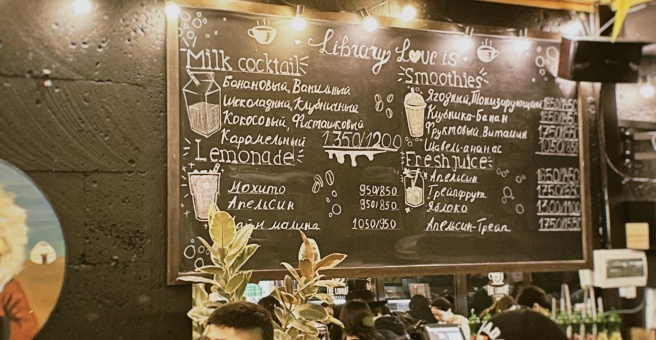 Library Love is
Milk cocktail
Банановый, Ванильный
Шоколадный, Клубничный
Кокосовый, Фисташковый
Карамельный 1350/1200
Lemonade
Мохито 950/850
Апельсин 950/850
малина 1050/950
Smoothies
Ягодный, Тонизирующий
Клубника-Банан
Фруктовый, Витамин
Щавель-ананас
Fresh juice
Апельсин
Грейпфрут
Яблоко
Апельсин-Греап.